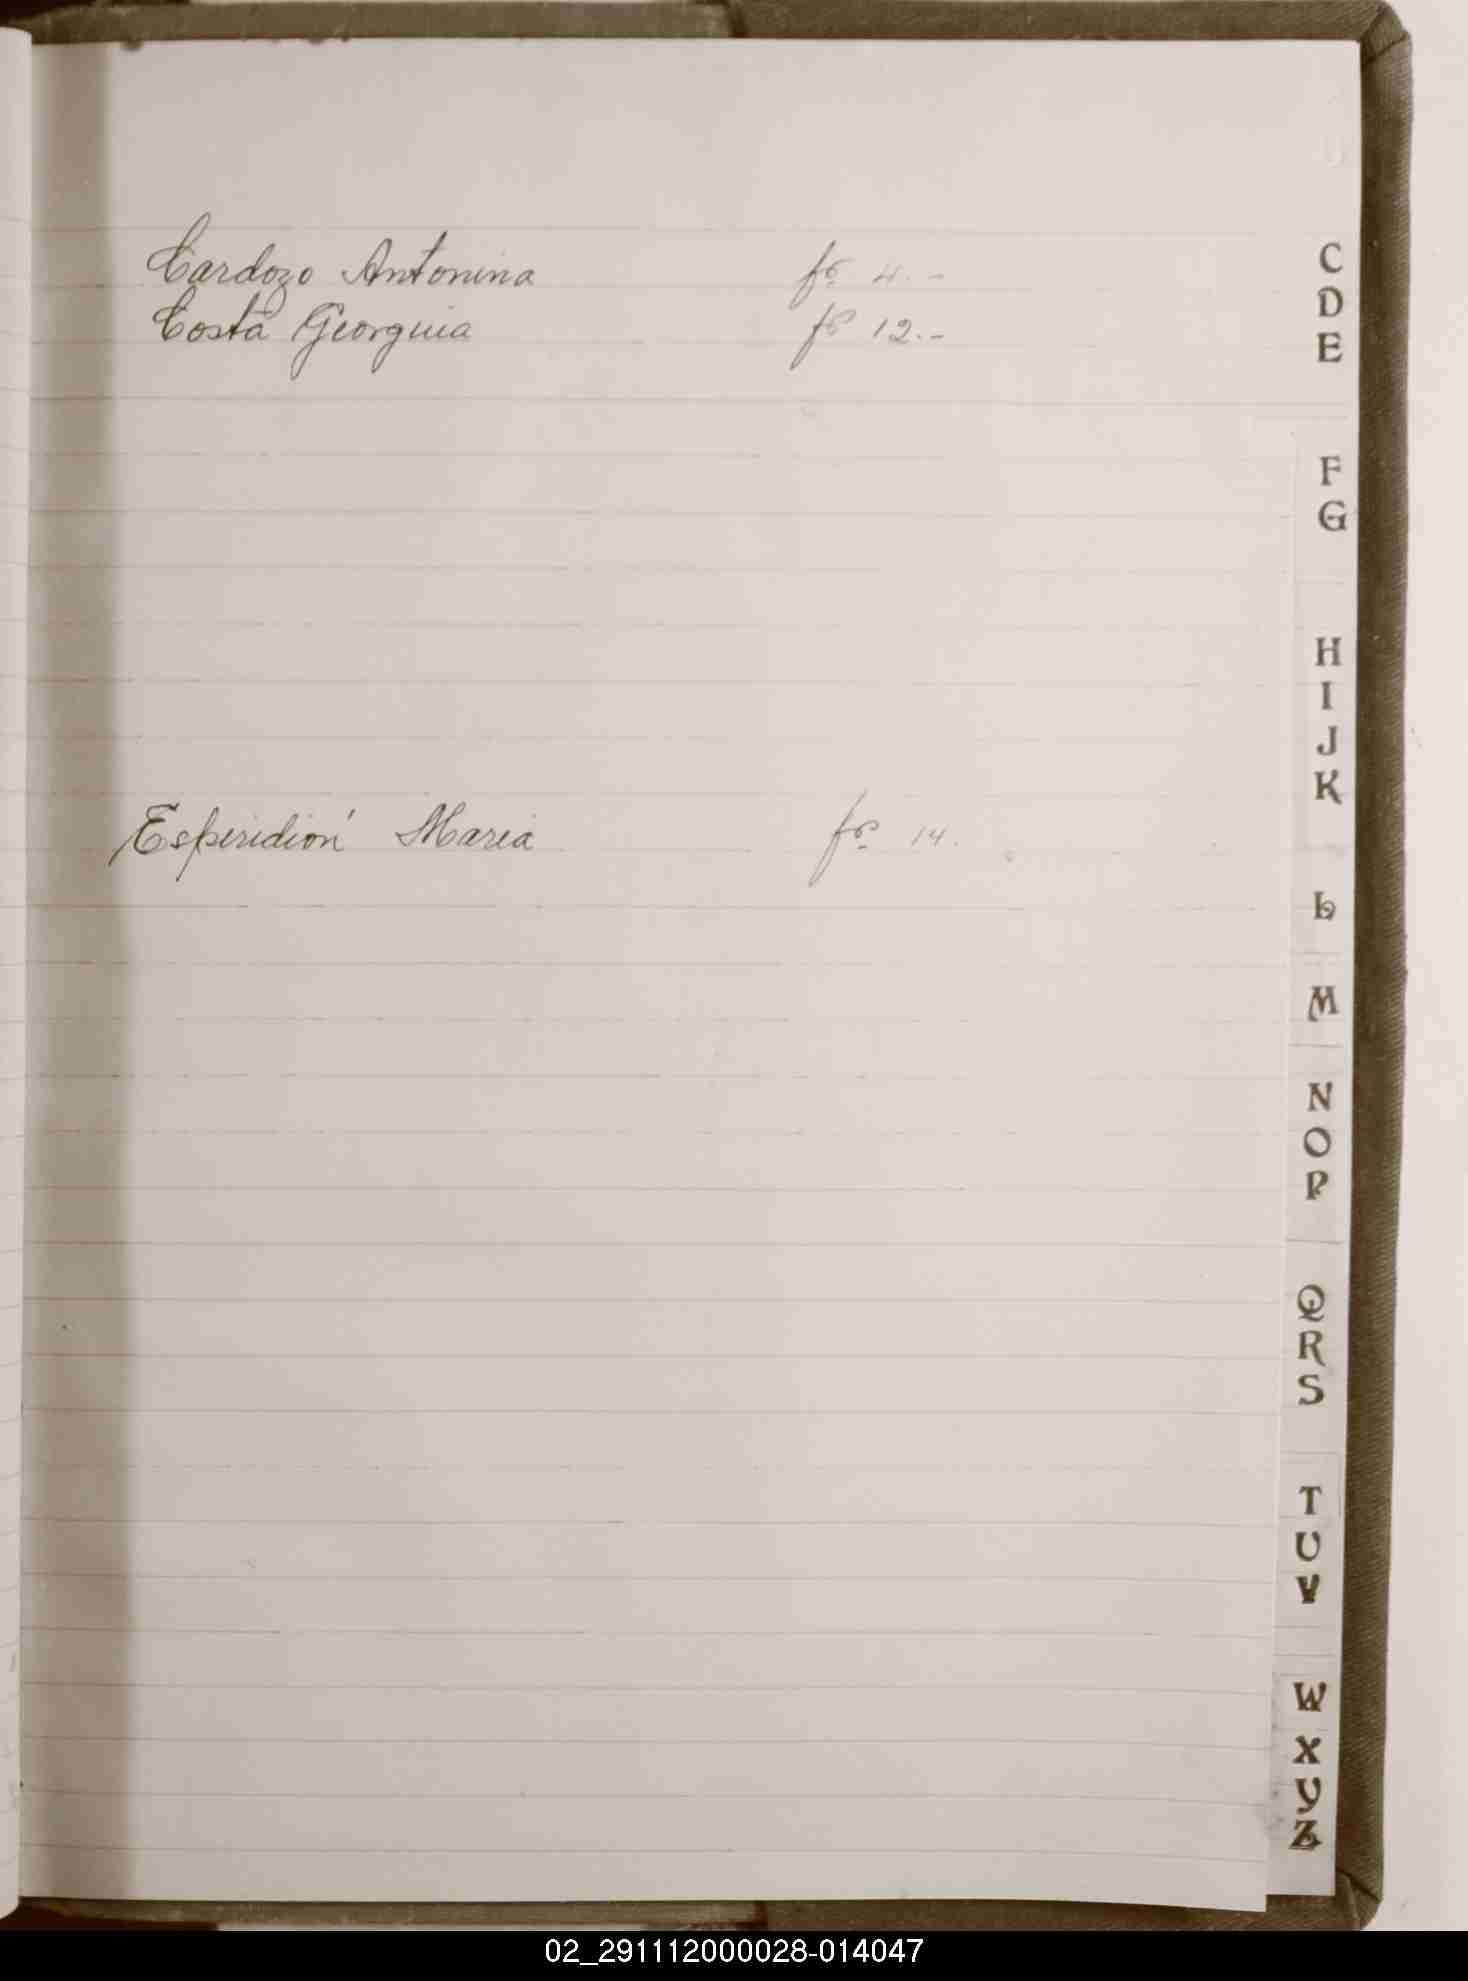 Cardozo Antonina fº 4.-
Costa Georguia fº 12.-
Esperidión Maria fº 14.
C
D
E
F
G
H
I
J
K
L
M
N
O
P
Q
R
S
T
U
V
W
X
Y
Z
02_291112000028-014047